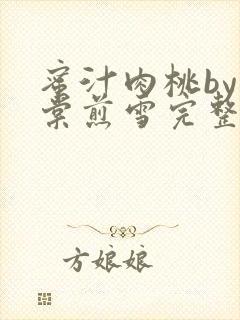 蜜汁肉桃by
棠煎雪完整
方娘娘